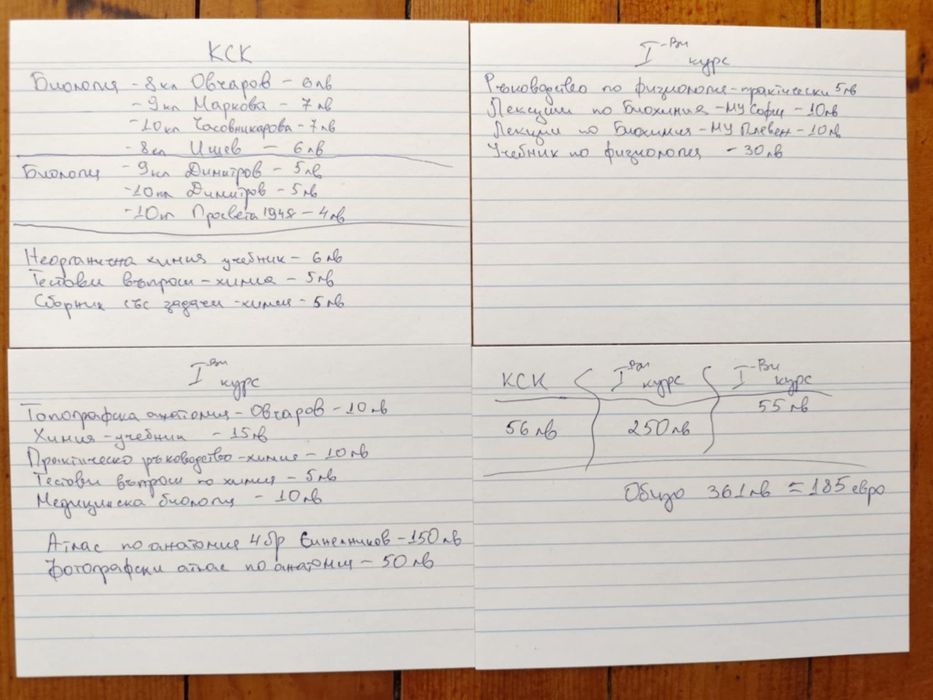 КСК
Биология - 8кл Овчаров - 6лв
- 9кл Маркова - 7лв
- 10кл Часовникарова - 7лв
- 8кл Ишев - 6лв
Биология - 9кл Димитров - 5лв
- 10кл Димитров - 5лв
- 10кл Просвета 1948 - 4лв
Неорганична химия учебник - 6лв
Тестови въпроси - химия - 5лв
Сборник със задачи - химия - 5лв
I-ви курс
Ръководство по физиология - практически 5лв
Лекции по Биохимия - МУ София - 10лв
Лекции по Биохимия - МУ Плевен - 10лв
Учебник по физиология - 30лв
I ви курс
Топографска анатомия - Овчаров - 10лв
Химия - учебник - 15лв
Практическо ръководство - химия - 10лв
Тестови въпроси по химия - 5лв
Медицинска биология - 10лв
Атлас по анатомия 4бр Синелников - 150лв
Фотографски атлас по анатомия - 50лв
КСК I ви курс I-ви курс
56лв 250лв 55лв
Общо 361лв = 185евро